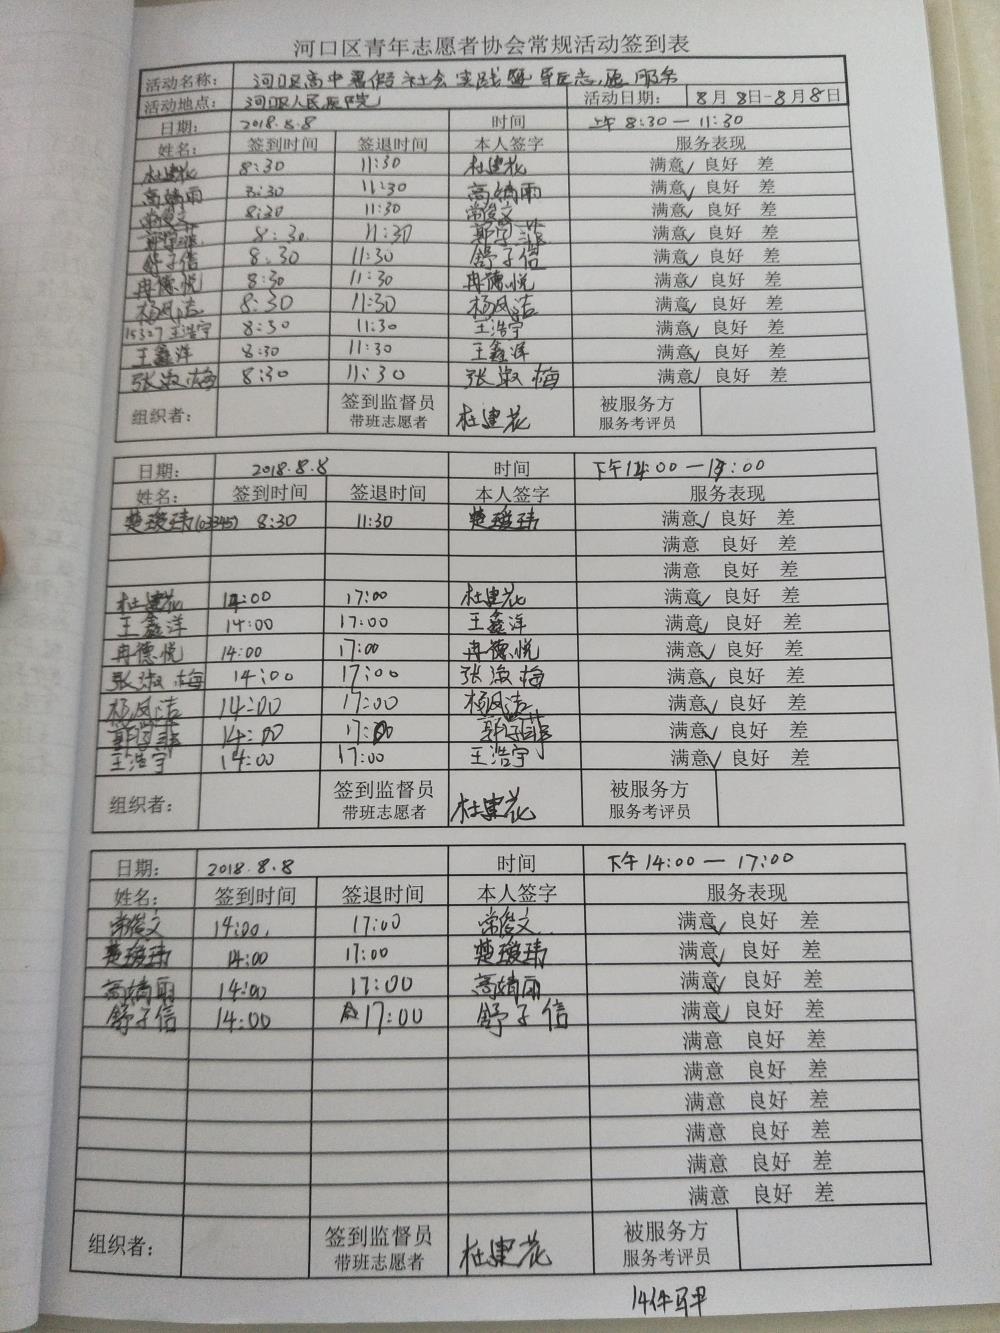 河口区青年志愿者协会常规活动签到表
活动名称： 河口区高中暑假社会实践暨导医志愿服务
活动地点： 河口区人民医院 活动日期： 8月8日-8月8日
日期： 2018.8.8 时间 上午 8:30 — 11:30
姓名： 签到时间 签退时间 本人签字 服务表现
杜建花 8:30 11:30 杜建花 满意✓ 良好 差
高婧雨 8:30 11:30 高婧雨 满意✓ 良好 差
常俊文 8:30 11:30 常俊文 满意✓ 良好 差
郭学菲 8:30 11:30 郭学菲 满意✓ 良好 差
舒子信 8:30 11:30 舒子信 满意✓ 良好 差
冉德悦 8:30 11:30 冉德悦 满意✓ 良好 差
杨风洁 8:30 11:30 杨风洁 满意✓ 良好 差
15307 王浩宇 8:30 11:30 王浩宇 满意✓ 良好 差
王鑫洋 8:30 11:30 王鑫洋 满意✓ 良好 差
张淑梅 8:30 11:30 张淑梅 满意✓ 良好 差
组织者： 签到监督员 杜建花 被服务方
带班志愿者 服务考评员
日期： 2018.8.8 时间 下午14:00 — 17:00
姓名： 签到时间 签退时间 本人签字 服务表现
楚璇玮(03345) 8:30 11:30 楚璇玮 满意✓ 良好 差
满意 良好 差
满意 良好 差
杜建花 14:00 17:00 杜建花 满意✓ 良好 差
王鑫洋 14:00 17:00 王鑫洋 满意✓ 良好 差
冉德悦 14:00 17:00 冉德悦 满意✓ 良好 差
张淑梅 14:00 17:00 张淑梅 满意✓ 良好 差
杨风洁 14:00 17:00 杨风洁 满意✓ 良好 差
郭学菲 14:00 17:00 郭学菲 满意✓ 良好 差
王浩宇 14:00 17:00 王浩宇 满意✓ 良好 差
组织者： 签到监督员 杜建花 被服务方
带班志愿者 服务考评员
日期： 2018.8.8 时间 下午 14:00 — 17:00
姓名： 签到时间 签退时间 本人签字 服务表现
常俊文 14:00 17:00 常俊文 满意✓ 良好 差
楚璇玮 14:00 17:00 楚璇玮 满意✓ 良好 差
高婧雨 14:00 17:00 高婧雨 满意✓ 良好 差
舒子信 14:00 17:00 舒子信 满意✓ 良好 差
满意 良好 差
满意 良好 差
满意 良好 差
满意 良好 差
满意 良好 差
满意 良好 差
组织者： 签到监督员 杜建花 被服务方
带班志愿者 服务考评员